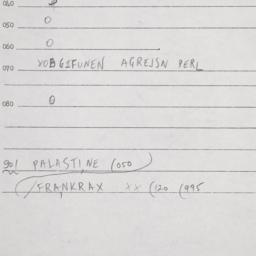 040
050 0
060 0
070 VOBGIFUNEN AGREJSN PERL
080 0
901 PALASTINE (050)
(FRANKRAX XX (120 (995